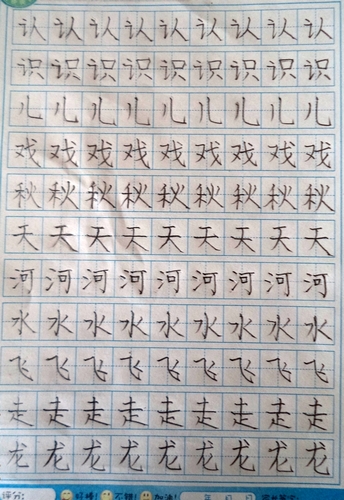 认认认认认认认认认
识识识识识识识识识
儿儿儿儿儿儿儿儿儿
戏戏戏戏戏戏戏戏戏
秋秋秋秋秋秋秋秋秋
天天天天天天天天天
河河河河河河河河河
水水水水水水水水水
飞飞飞飞飞飞飞飞飞
走走走走走走走走走
龙龙龙龙龙龙龙龙龙
评分: 好棒! 不错! 加油! 年 月 日